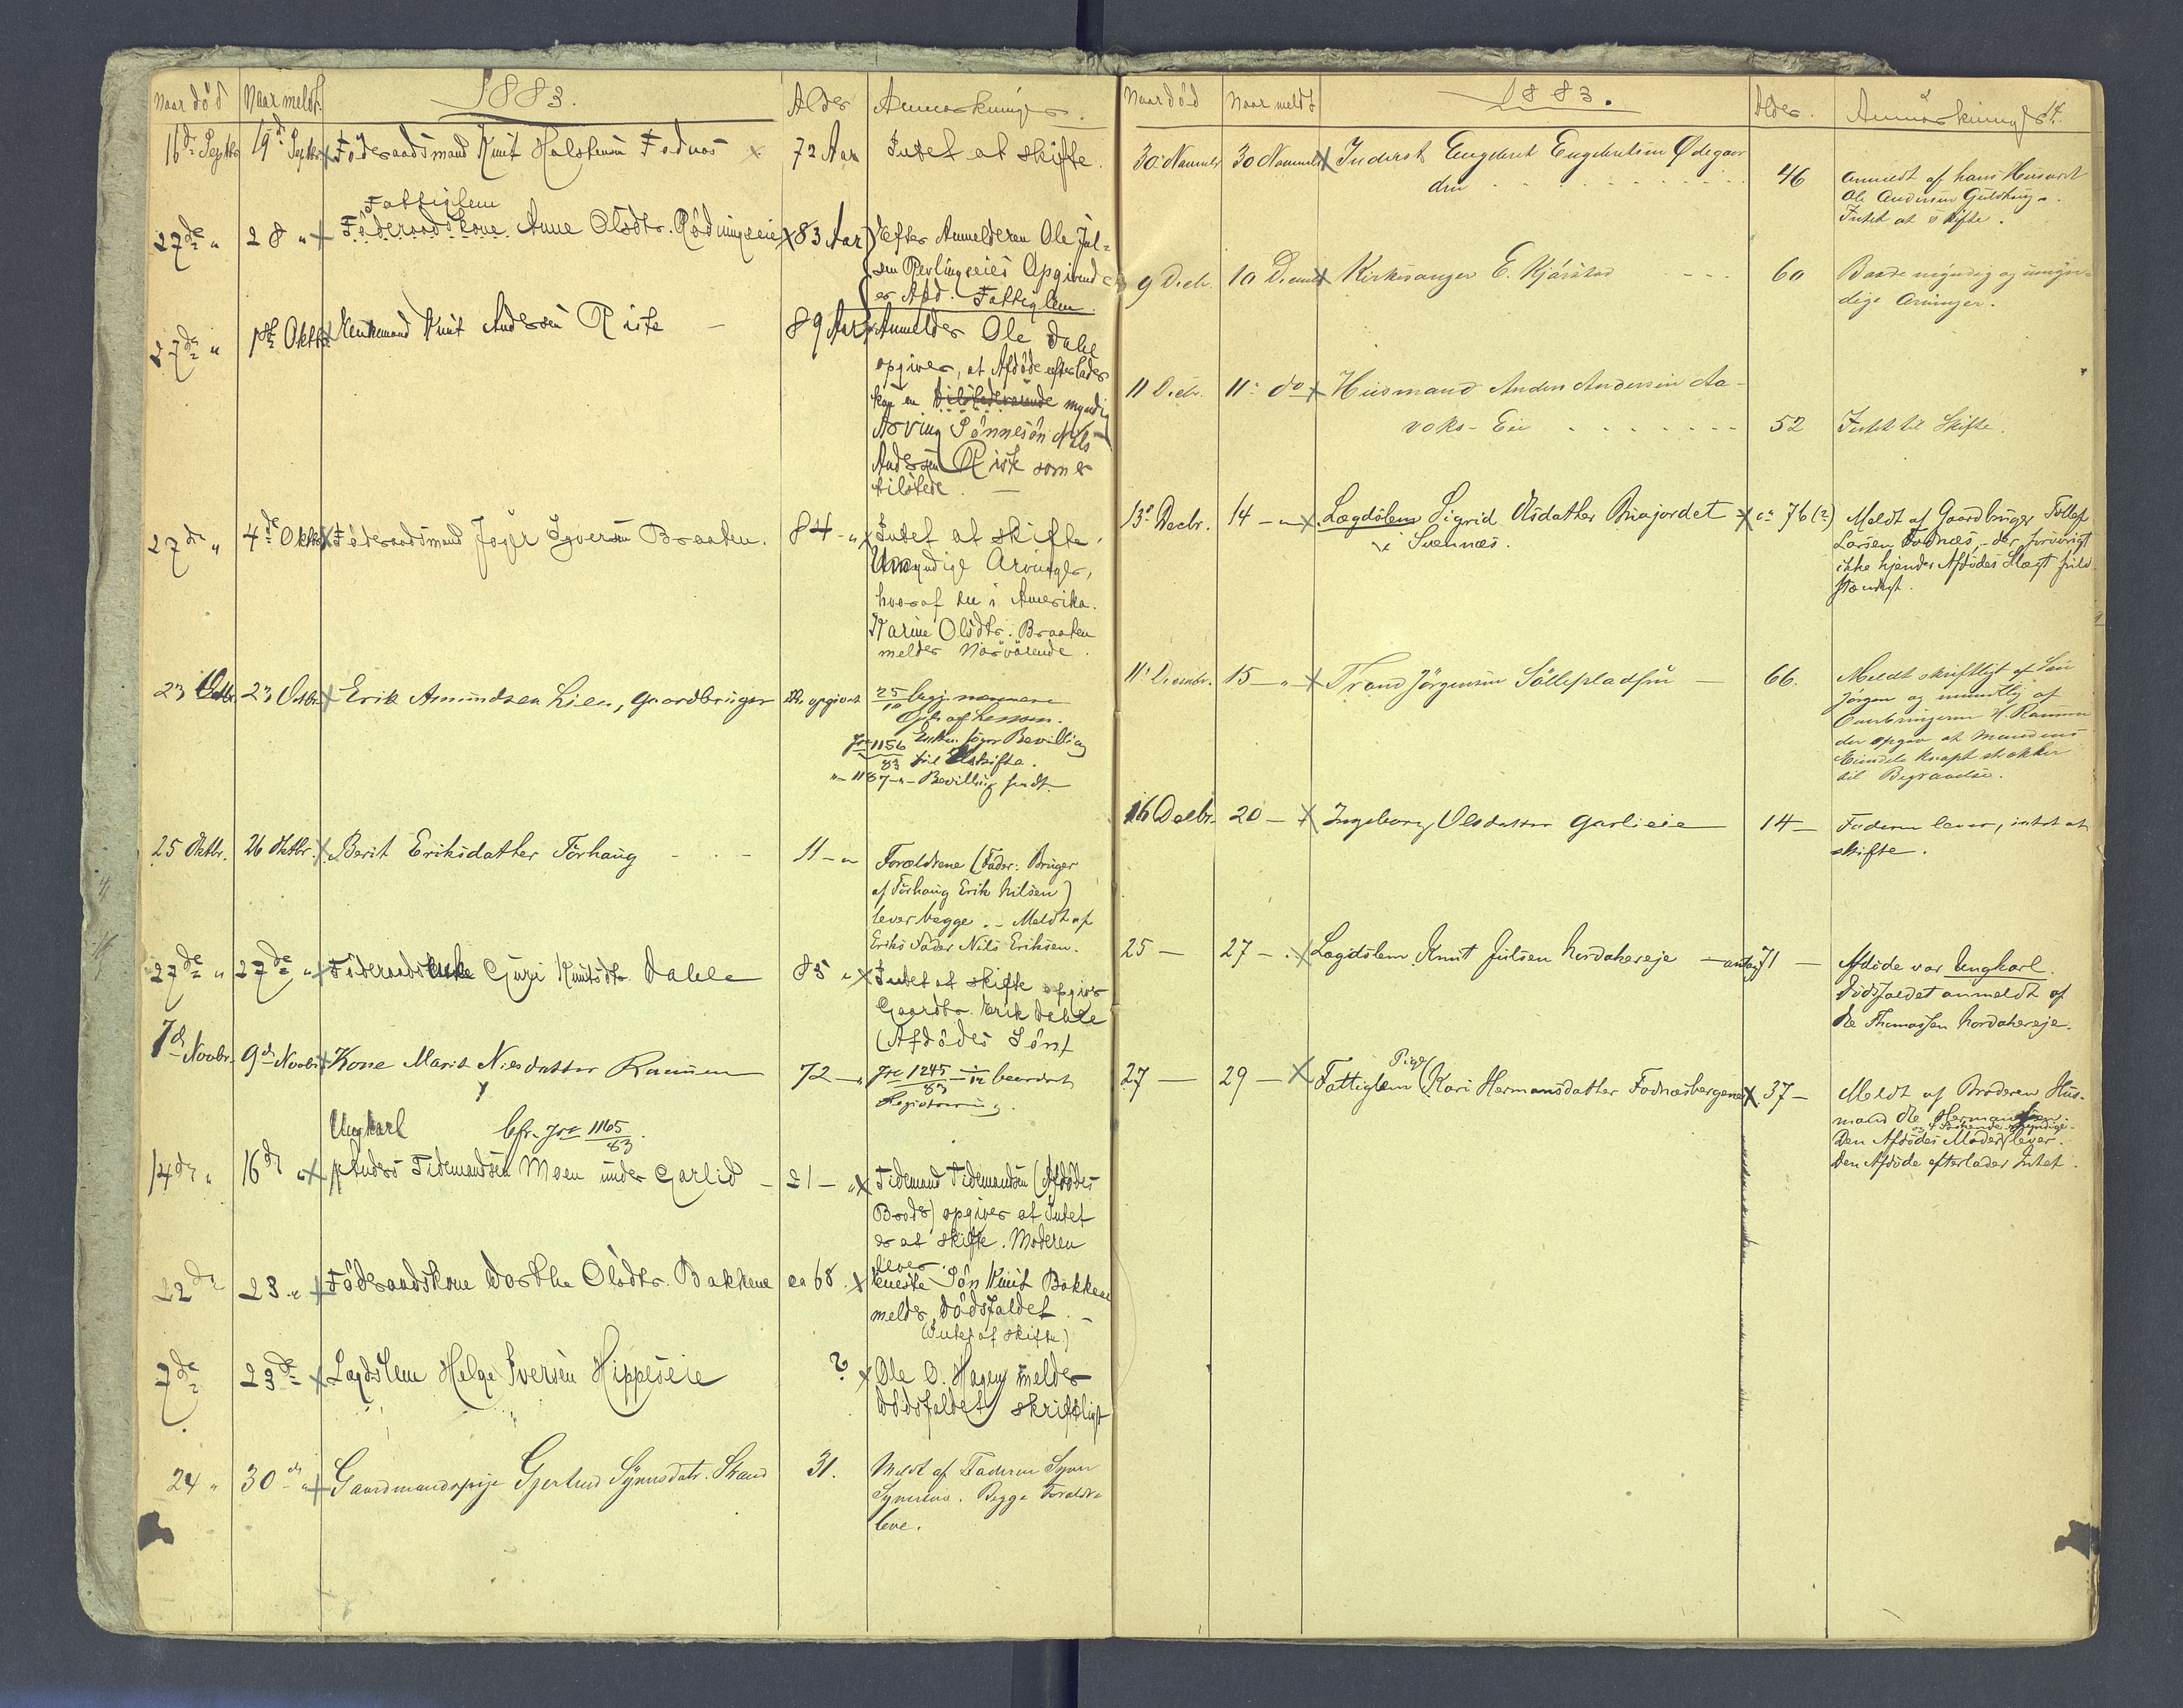 Naar död Naar meldt 1883. Alder Anmærkninger.
16de Septbr 19de Septbr Föderaadsmand Knut Halstensen Fodnæs 72 Aar Intet at skifte.
Fattiglem
27de " 28 " Föderaadskone Anne Olsdtr. Rödningseie 83 Aar Efter Anmelderen Ole Jul-
sen Revlingseies Opgivende
er Afd. Fattiglem.
27de " 1ste Oktbr Enkemand Knut Andersen Riste 89 Aar Anmelder Ole Dahl
opgiver, at Afdöde efterlader
kun en tilstedeværende myndig
Arving Sönnesön Nils
Andersen Riste som er
tilstede. —
27de " 4de Oktbr Föderaadsmand Joger Iversen Braaten. 84 - " Intet at skifte.
Umyndige Arvinger,
hvoraf en i Amerika.
Karine Olsdtr. Braaten
melder Nærværende.
23 Octbr. 23 Octbr. Erik Amundsen Lien, Gaardbruger opgivet 25/10
Jre 1156/83 Enken söger Bevilling
til Uskifte.
" - 1187 - " - Bevilling sendt.
25 Oktbr. 26 Oktbr. Berit Eriksdatter Törhaug - - - 11 - " Forældrene (Fader: Bruger
af Törhaug Erik Nilsen)
lever begge. - Meldt af
Eriks Fader Nils Eriksen.
27de " 27de " Föderaadsenke Guri Knutsdtr. Dahle 85 " Intet at skifte opgiver
Gaardbr. Erik Dahle
(Afdödes Sön)
7de Novbr. 9de Novbr Kone Marit Nilsdatter Ranum 72 - " Jre 1245/83 beordret
Registrering.
Ungkarl cfr. Jre 1165/83.
14de " 16de " Anders Tidemandsen Moen under Garlid - 21 - " Tidemand Tidemandsen (Afdödes
Broder) opgiver at Intet
er at skifte. Moderen
lever.
22de 23 " Föderaadskone Dorthe Olsdtr. Bakkene ca 68 Eneste Sön Knut Bakkene
melder Dödsfaldet. -
(Intet at skifte)
7de 23de Lægdslem Helge Iversen Hippeseie ? Ole O. Hagen melder
Dödsfaldet skriftligt
24 " 30de " Gaardmandspige Gjertrud Synnesdatr. Strand 31. Meldt af Faderen Syver
Syversen. Begge Forældre
leve.
Naar död Naar meldt 1883. Alder. Anmærkninger 14.
30 Novembr 30 Novembr Inderst Engebret Engebretsen Ödegaar
den - - - - - 46 Anmeldt af hans Husvert
Ole Andersen Guldhaug.
Intet at skifte.
9 Decbr. 10 Decembr Kirkesanger E. Kjærstad - - - 60 Baade myndige og umyn-
dige Arvinger.
11 Decbr. 11 do Husmand Anders Andersen Aa-
voks-Eie - - - - - 52 Intet til Skifte.
13de Decbr. 14 - " Lægdslem Sigrid Olsdatter Buajordet ca 76 (?) Meldt af Gaardbruger Tollef
i Svennæs. Larsen Fodnæs, der forövrigt
ikke kjender Afdödes Slægt fuld
stændigt.
11 Decembr. 15 - " Trond Jörgensen Söllepladsen — 66. Meldt skriftligt af Sön
Jörgen og mundtlig af
Overbringeren H. Ranum
der opgav at Mandens
Eiendele knapt strækker
til Begravelse.
16 Decbr. 20 - Ingeborg Olsdatter Garlieie 14 - Faderen lever, intet at
skifte.
25 - 27 - . Lægdslem Knut Julsen Nordahereje — antag 71 - Afdöde var Ungkarl.
Dödsfaldet anmeldt af
Ole Thomassen Nordahereje.
Pige
27 - 29 - Fattiglem Kari Hermansdatter Fodnæsbergene 37 - Meldt af Broderen Hus-
mand Ole Hermansen.
og Söskende myndige.
Den Afdödes Moder lever.
Den Afdöde efterlader Intet.